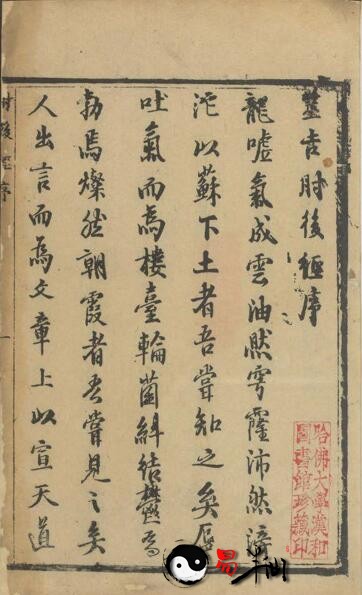 筮吉肘後經序
龍噓氣成雲油然霶霳沛然滂
沱以蘇下土者吾嘗知之矣蜃
吐氣而爲樓臺輪菌糾結鬱焉
勃焉燦然朝霞者吾嘗見之矣
人出言而爲文章上以宣天道
肘後經序
哈佛大學漢和
圖書館珍藏印
易